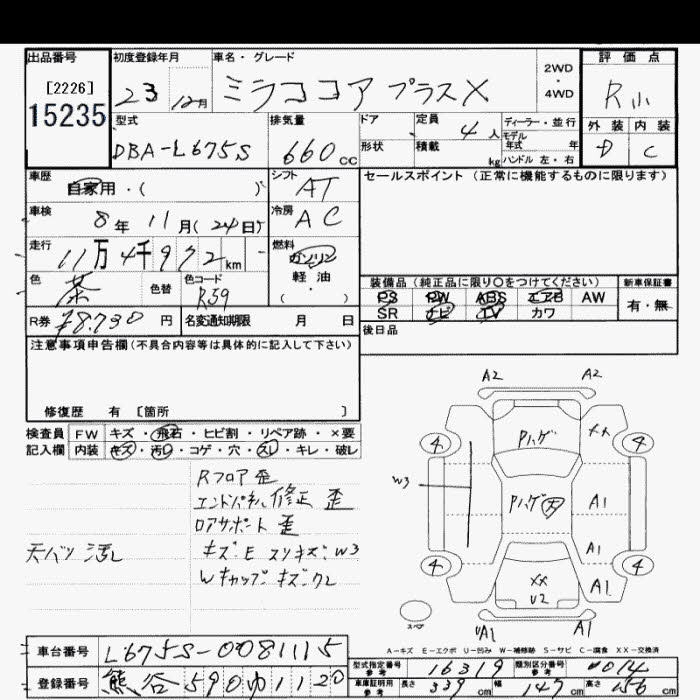 出品番号 初度登録年月 車名・グレード 2WD・4WD 評価点
[2226]
15235
23 12月 ミラココア プラスX R小
型式 排気量 ドア 定員 ディーラー・並行 外装 内装
DBA-L675S 660cc 4人 モデル年式 年 D C
形状 積載 kg ハンドル 左・右
車歴 シフト セールスポイント(正常に機能するものに限ります)
自家用・( ) AT
車検 冷房
8年 11月(24日) AC
走行 燃料
11万4千972km ガソリン
軽油
( )
色 色替 色コード 装備品(純正品に限り○をつけてください) 新車保証書
茶 R59 PS PW ABS エアB AW 有・無
SR ナビ TV カワ
R券 ¥8,730円 名変通知期限 月 日 後日品
注意事項申告欄(不具合内容等は具体的に記入して下さい)
修復歴 有 [箇所 ]
検査員 FW キズ・飛石・ヒビ割・リペア跡・×要
記入欄 内装 キズ・汚れ・コゲ・穴・スレ・キレ・破レ
Rフロア 歪
エンドパネル 修正 歪
ロアサポート 歪
天バリ 汚レ
キズ・E スリキズ W3
Wキャップ キズ・
A2 A2
Pハゲ ××
4 4
W3
Pハゲ A1
A1
4 4
×× A1
U2
スペア
UA1 A1
A-キズ E-エクボ U-凹み W-補修跡 S-サビ C-腐食 XX-交換済
車台番号 L675S-0081115
登録番号 熊谷 590 ゆ 1120
型式指定番号 参考 16319 類別区分番号 参考 0014
車庫証明用 参考 長さ 339cm 幅 147cm 高さ 156cm